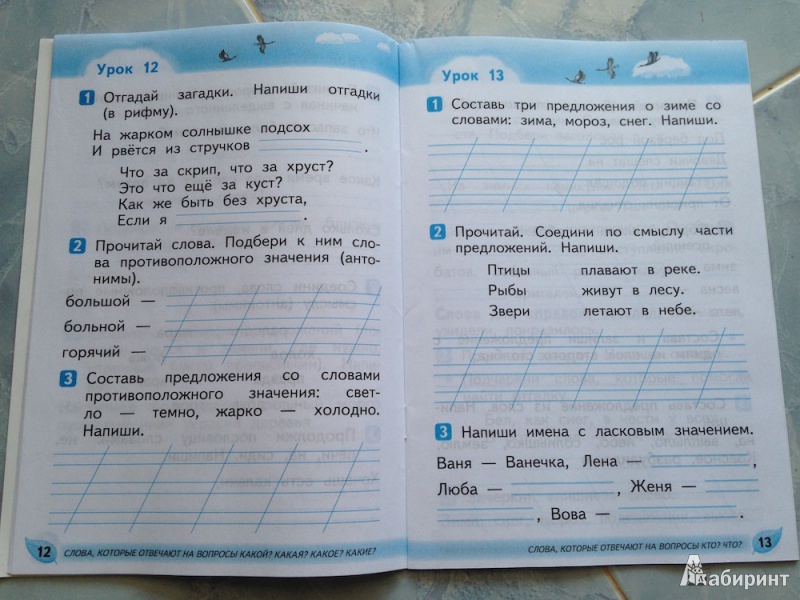 Урок 12
1 Отгадай загадки. Напиши отгадки
(в рифму).
На жарком солнышке подсох
И рвётся из стручков .
Что за скрип, что за хруст?
Это что ещё за куст?
Как же быть без хруста,
Если я .
2 Прочитай слова. Подбери к ним сло-
ва противоположного значения (анто-
нимы).
большой —
больной —
горячий —
3 Составь предложения со словами
противоположного значения: свет-
ло — темно, жарко — холодно.
Напиши.
12 СЛОВА, КОТОРЫЕ ОТВЕЧАЮТ НА ВОПРОСЫ КАКОЙ? КАКАЯ? КАКОЕ? КАКИЕ?
Урок 13
1 Составь три предложения о зиме со
словами: зима, мороз, снег. Напиши.
2 Прочитай. Соедини по смыслу части
предложений. Напиши.
Птицы плавают в реке.
Рыбы живут в лесу.
Звери летают в небе.
3 Напиши имена с ласковым значением.
Ваня — Ванечка, Лена — ,
Люба — , Женя —
, Вова — .
СЛОВА, КОТОРЫЕ ОТВЕЧАЮТ НА ВОПРОСЫ КТО? ЧТО? 13
Лабиринт